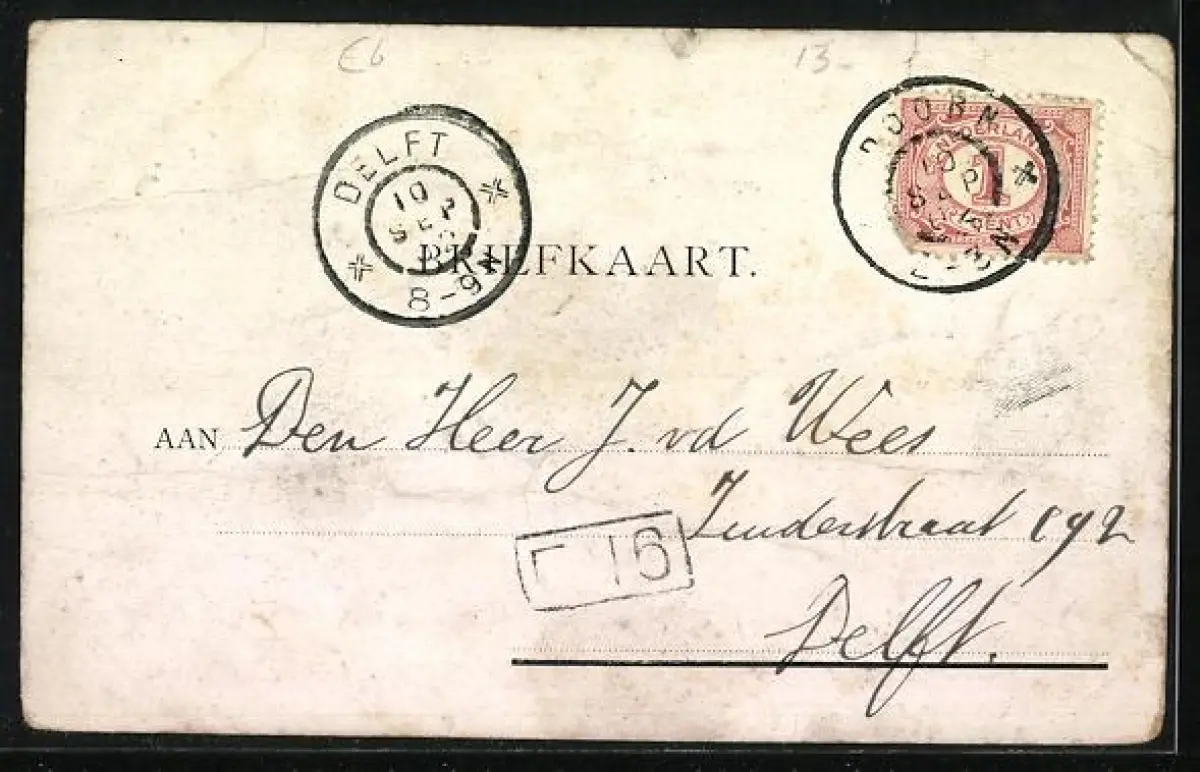 E6 13-
DELFT
10
SE
8-9
DOORN
NEDERLAND
1
CENT
BRIEFKAART.
AAN Den Heer J. vd Wees
Zuiderstraat 192
16
Delft.